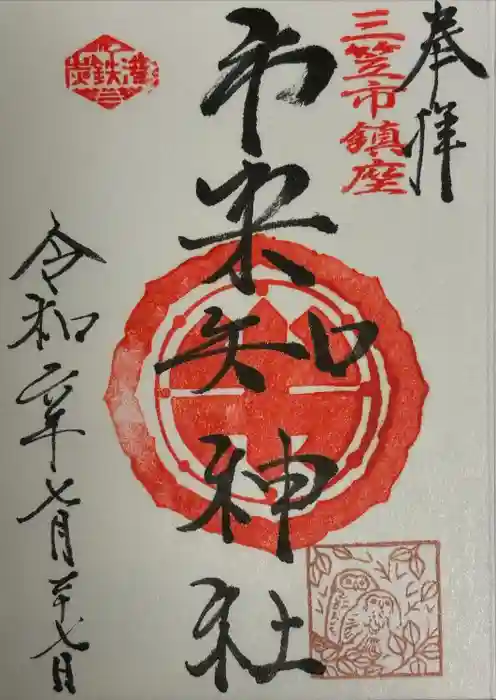 奉拝
三笠市鎮座
市来知神社
令和六年七月二十七日
炭鉄港